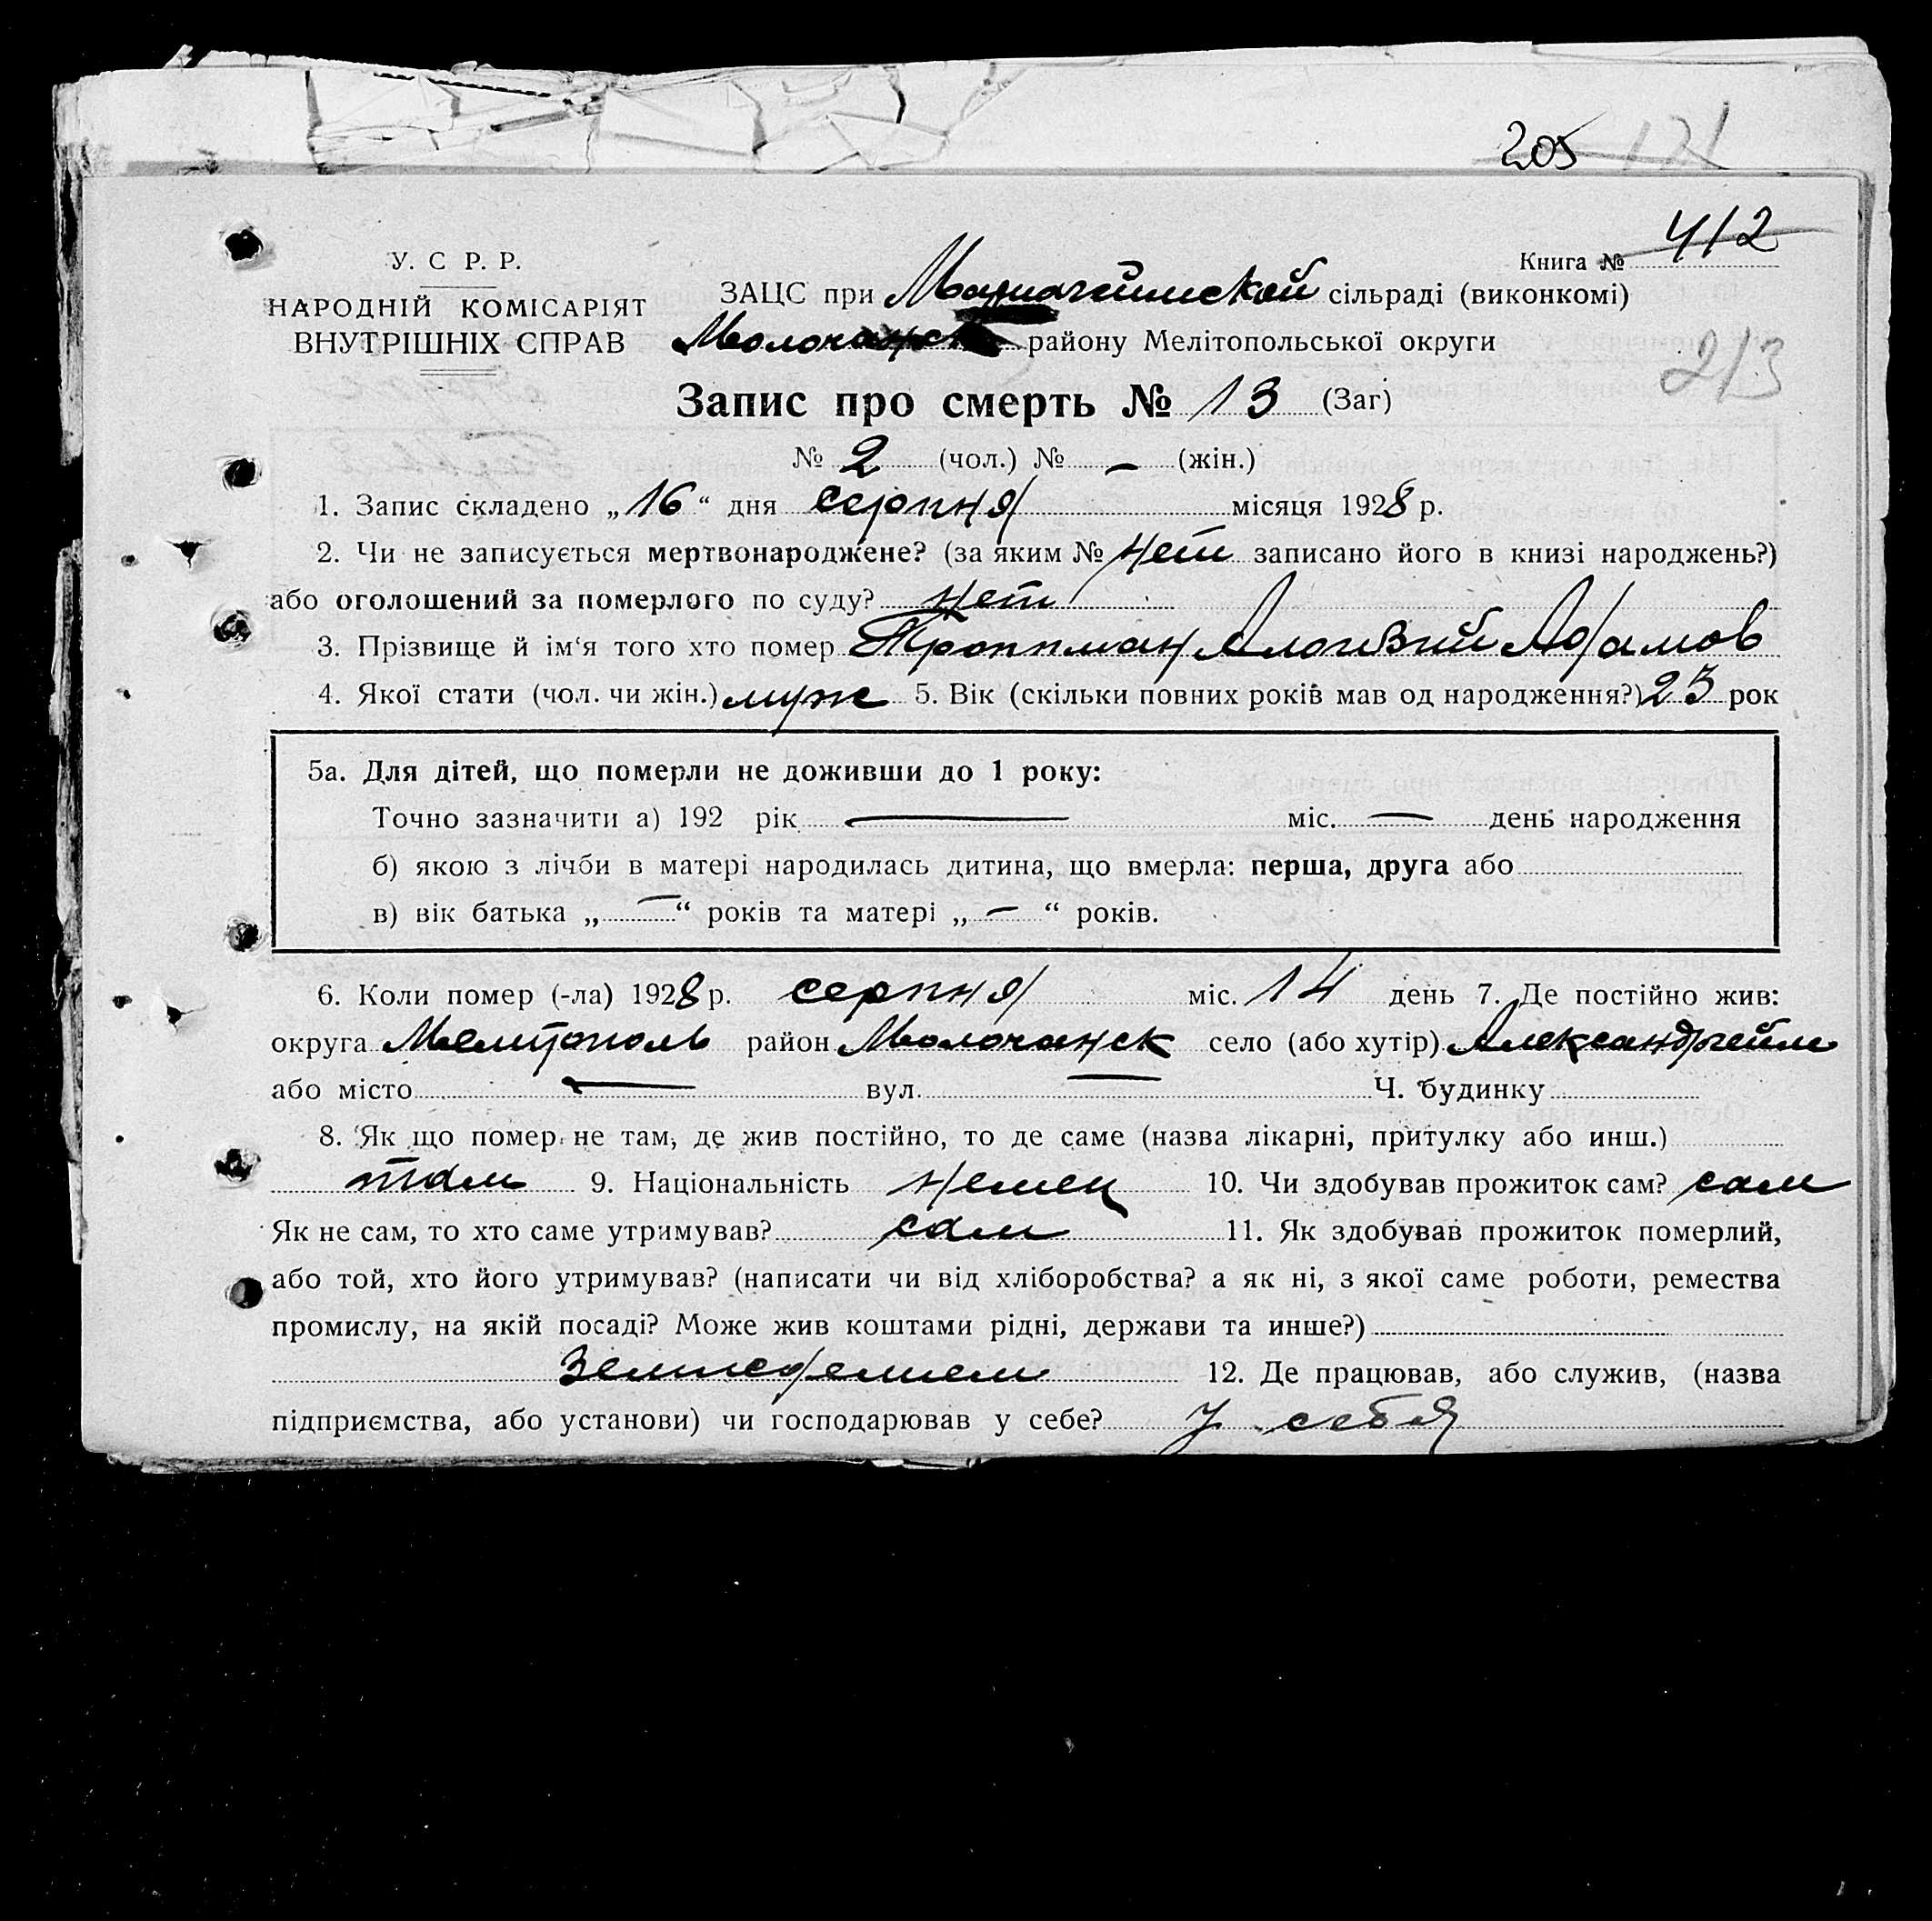 205 121
У. С Р. Р.
НАРОДНІЙ КОМІСАРІЯТ
ВНУТРІШНІХ СПРАВ
Книга № 412
ЗАЦС при сільраді (виконкомі)
Молочанск району Мелітопольської округи
213
Запис про смерть № 13 (Заг)
№ 2 (чол.) № — (жін.)
1. Запис складено „16“ дня серпня місяця 1928 р.
2. Чи не записується мертвонароджене? (за яким № нет записано його в книзі народжень?)
або оголошений за померлого по суду? нет
3. Прізвище й ім‘я того хто помер Троппман Алоизий Адамов
4. Якої стати (чол. чи жін.) муж 5. Вік (скільки повних років мав од народження?) 23 рок
5а. Для дітей, що померли не доживши до 1 року:
Точно зазначити а) 192 рік — міс. — день народження
б) якою з лічби в матері народилась дитина, що вмерла: перша, друга або
в) вік батька „ — “ років та матері „ — “ років.
6. Коли помер (-ла) 1928 р. серпня міс. 14 день 7. Де постійно жив:
округа Мелитополь район Молочанск село (або хутір) Александргейм
або місто — вул. — Ч. будинку
8. Як що помер не там, де жив постійно, то де саме (назва лікарні, притулку або инш.)
там 9. Національність немец 10. Чи здобував прожиток сам? сам
Як не сам, то хто саме утримував? сам 11. Як здобував прожиток померлий,
або той, хто його утримував? (написати чи від хліборобства? а як ні, з якої саме роботи, ремества
промислу, на якій посаді? Може жив коштами рідні, держави та инше?)
Земледелием 12. Де працював, або служив, (назва
підприємства, або установи) чи господарював у себе? у себя